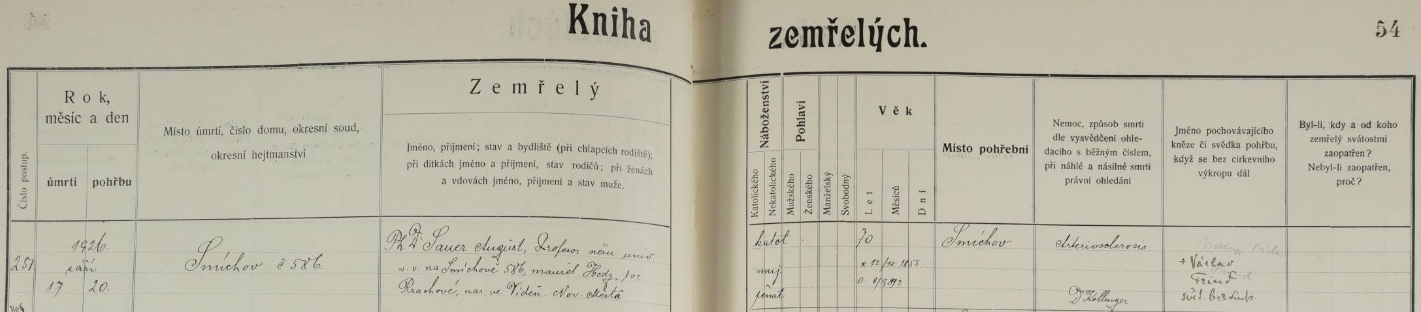 Kniha zemřelých. 54
Číslo postup.
Rok,
měsíc a den
úmrtí pohřbu
Místo úmrtí, číslo domu, okresní soud,
okresní hejtmanství
Zemřelý
Jméno, příjmení; stav a bydliště (při chlapcích rodiště);
při dítkách jméno a příjmení, stav rodičů; při ženách
a vdovách jméno, příjmení a stav muže.
Náboženství
Katolického
Nekatolického
Pohlaví
Mužského
Ženského
Manželský
Svobodný
Věk
Let
Měsíců
Dní
Místo pohřební
Nemoc, způsob smrti
dle vysvědčení ohle-
dacího s běžným číslem,
při náhlé a násilné smrti
právní ohledání
Jméno pochovávajícího
kněze či svědka pohřbu,
když se bez církevního
výkropu dál
Byl-li, kdy a od koho
zemřelý svátostmi
zaopatřen?
Nebyl-li zaopatřen,
proč?
251
1926
září
17 20.
Smíchov č 586
PhDr Sauer August, Profesor něm univ
v. v. na Smíchově 586, manžel Hedy
nar. ve Vídeň. Nov. Městě
katol
muž
70
* 12/10 1855
Smíchov
Arteriosclerosis
Dr Kollinger
+ Václav